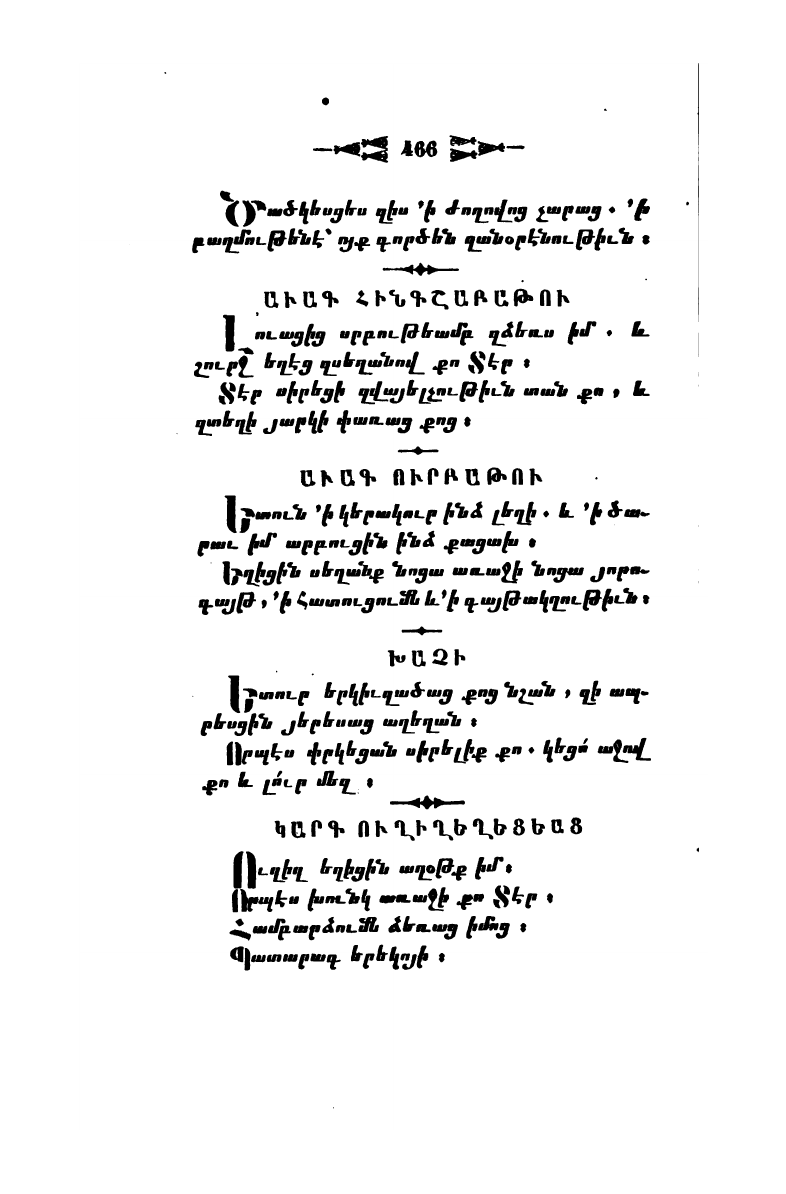 466
Ծածկեսցես զիս ՚ի ժողովոց չարաց . ՚ի
բազմութենէ՝ ոյք գործեն զանօրէնութիւն ։
ԱՒԱԳ ՀԻՆԳՇԱԲԱԹՈՒ
Լուացից սրբութեամբ զձեռս իմ . և
շուրջ եղէց զսեղանով քո Տէր ։
Տէր սիրեցի զվայելչութիւն տան քո , և
զտեղի յարկի փառաց քոց ։
ԱՒԱԳ ՈՒՐԲԱԹՈՒ
Ետուն ՚ի կերակուր ինձ լեղի . և ՚ի ծա-
րաւ իմ արբուցին ինձ քացախ ։
Եղիցին սեղանք նոցա առաջի նոցա յորո-
գայթ , ՚ի հատուցումն և ՚ի գայթակղութիւն ։
ԽԱՉԻ
Ետուր երկիւղածաց քոց նշան , զի ապ-
րեսցին յերեսաց աղեղան ։
Որպէս փրկեցան սիրելիք քո . կեցո՛ աջով
քո և լո՛ւր մեզ ։
ԿԱՐԳ ՈՒՂԻՂԵՂԵՑԵԱՑ
Ուղիղ եղիցին աղօթք իմ ։
Որպէս խունկ առաջի քո Տէր ։
Համբարձումն ձեռաց իմոց ։
Պատարագ երեկոյի ։